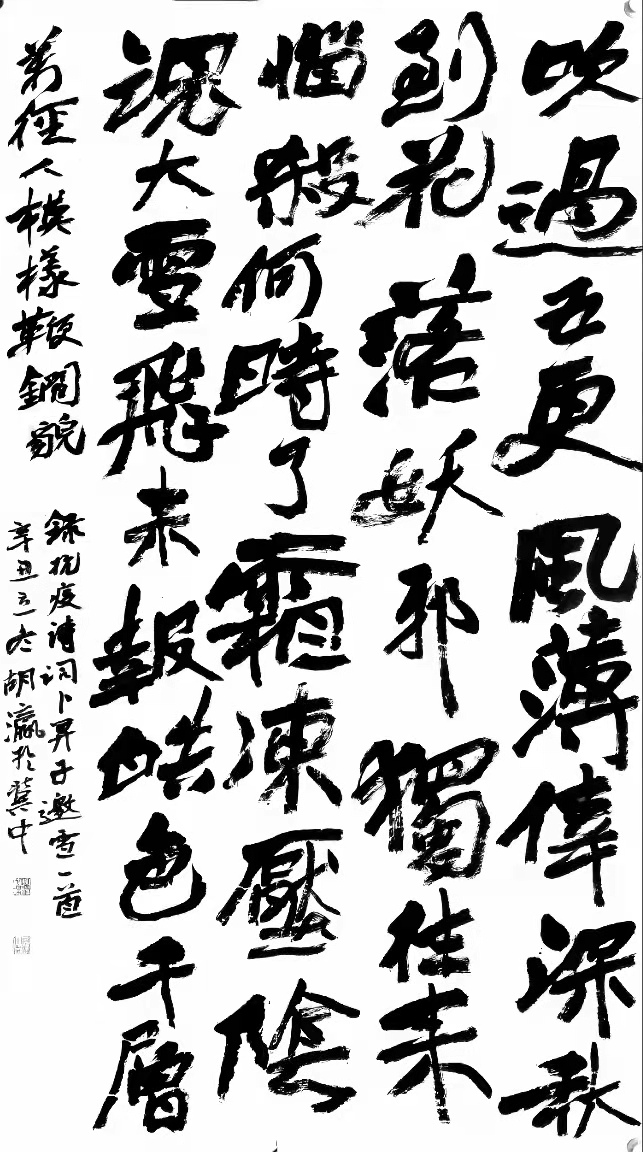 吹過五更風薄倖深秋
到花落妖邪獨往来
惱殺何時了霜凍壓陰
魂大雪飛未報皓色千層
萬徑人模樣鞭鐧貌
錄抗疫诗词卜算子邀雪一首
辛丑立冬胡瀛於冀中